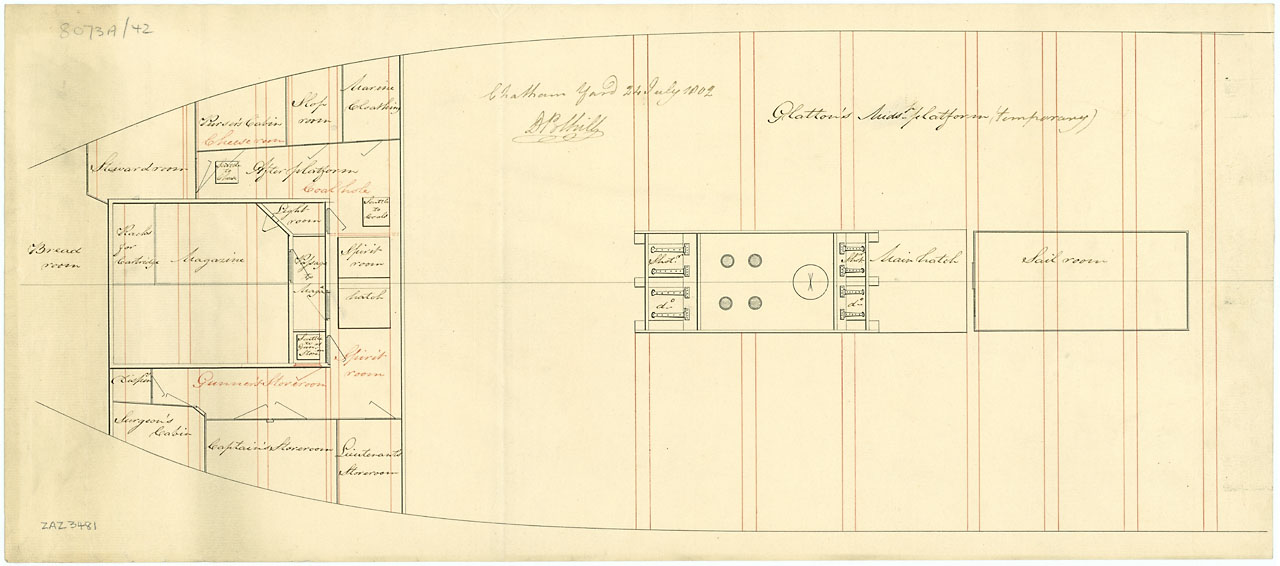 8073A/42
Chatham Yard 24 July 1802
Glatton's Mids.r platform (temporary)
Marine
Cloathing
Slop
room
Purser's Cabin
Cheese room
Steward room
After platform
Coal hole
Scuttle
to
Coals
Light
room
Bread
room
Racks
for
Cartridge
Magazine
Passage
to
Magaz
Spirit
room
hatch
Scuttle
to
Spirit
room
Gunner's Storeroom
Dispen
Surgeon's
Cabin
Captain's Storeroom
Lieutenant's
Storeroom
Shot
do
Shot
do
Main hatch
Sail room
ZAZ3481